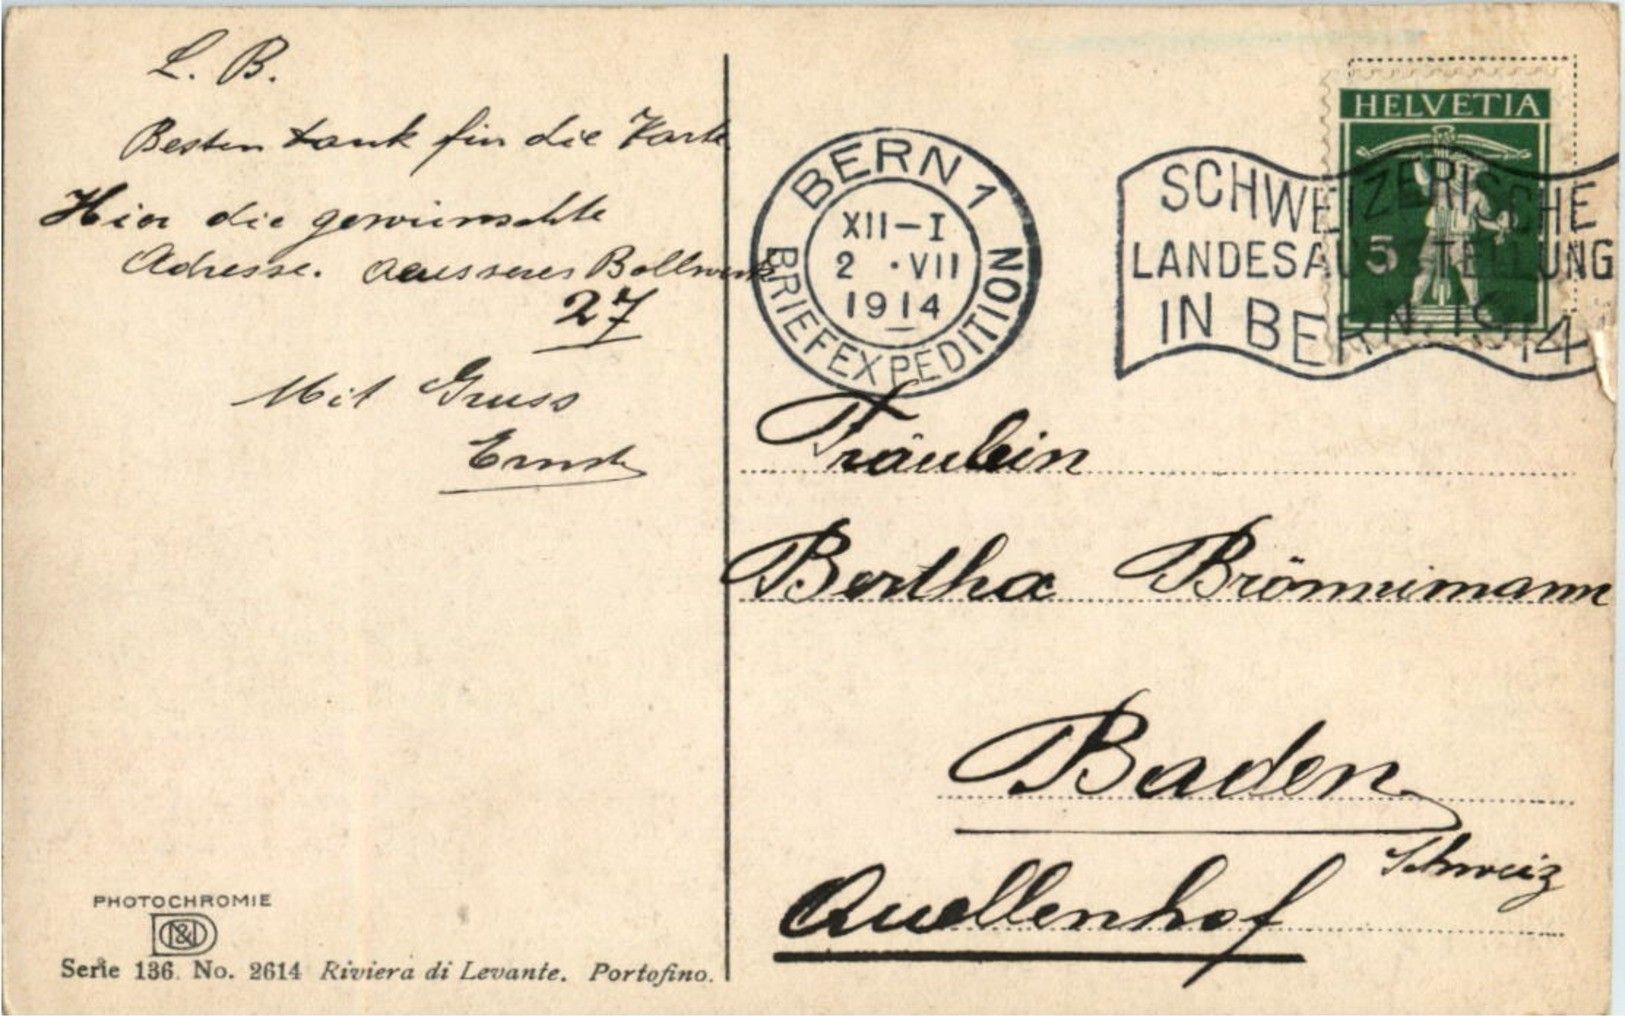 L. B.
Besten Dank für die Karte
Hier die gewünschte
Adresse. Aeusseres Bollwerk
27
Mit Gruss
Ernst
PHOTOCHROMIE
D&D
Serie 136. No. 2614 Riviera di Levante. Portofino.
BERN 1
XII-I
2 . VII
1914
BRIEFEXPEDITION
SCHWEIZERISCHE
LANDESAUSSTELLUNG
IN BERN. 1914
HELVETIA
5
Fräulein
Bertha Brönnimann
Baden
Schweiz
Quellenhof